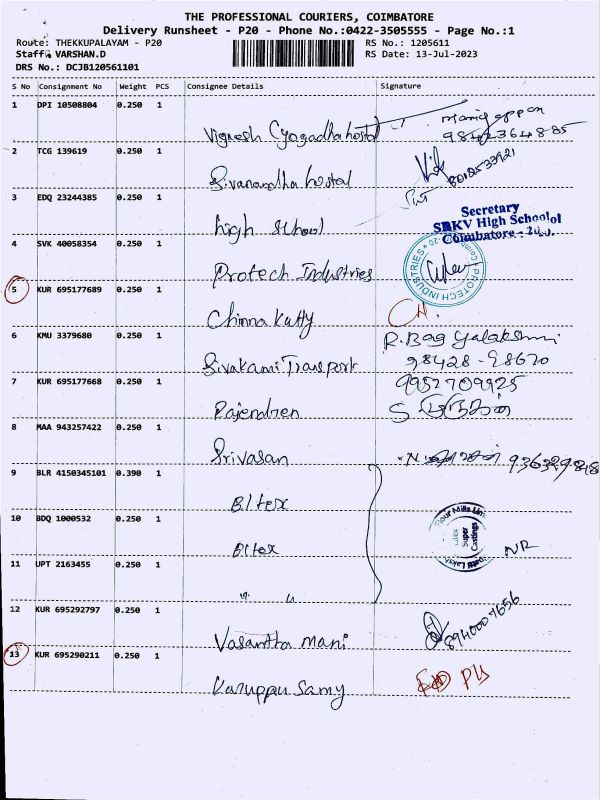 THE PROFESSIONAL COURIERS, COIMBATORE
Delivery Runsheet - P20 - Phone No.:0422-3505555 - Page No.:1
Route: THEKKUPALAYAM - P20 RS No.: 1205611
Staff: VARSHAN.D RS Date: 13-Jul-2023
DRS No.: DCJB120561101
S No Consignment No Weight PCS Consignee Details Signature
1 DPI 10508804 0.250 1
Vignesh hostal
9842364885
2 TCG 139619 0.250 1
Sivanandha hostal
8012533921
3 EDQ 23244385 0.250 1
high school
Secretary
SBKV High School
Coimbatore
4 SVK 40058354 0.250 1
Protech Industries
PROTECH INDUSTRIES
5 KUR 695177689 0.250 1
Chinna Kutty
CH.
6 KMU 3379680 0.250 1
Sivakami Transport
R. Bagyalakshmi
98428-98670
7 KUR 695177668 0.250 1
Rajendren
9952709925
8 MAA 943257422 0.250 1
Srivasan
9 BLR 4150345101 0.390 1
Eltex
10 BDQ 1000532 0.250 1
Eltex
Super
Castings
NR
11 UPT 2163455 0.250 1
" "
12 KUR 695292797 0.250 1
Vasantha mani
8940007656
13 KUR 695290211 0.250 1
Karuppu Samy